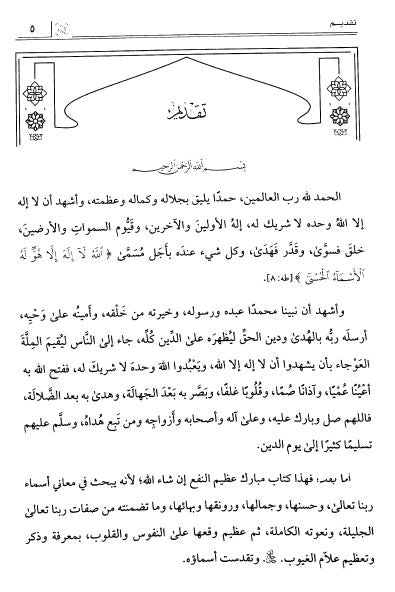 تقديم
٥
تقديم
بسم الله الرحمن الرحيم
الحمد لله رب العالمين، حمدًا يليق بجلاله وكماله وعظمته، وأشهد أن لا إله
إلا اللهُ وحده لا شريك له، إلهُ الأولينَ والآخرين، وقَيُّوم السموات والأرضينَ،
خلقَ فسوَّىٰ، وقدَّر فَهَدَىٰ، وكل شيء عندَه بأجَل مُسَمَّىٰ ﴿ اللَّهُ لَا إِلَهَ إِلَّا هُوَّ لَهُ
الْأَسْمَاءُ الْحُسْنَى ﴾ [طه: ٨].
وأشهد أن نبينا محمدًا عبده ورسوله، وخيرته من خَلْقه، وأمينُه علىٰ وَحْيِه،
أرسلَه ربُّه بالهُدىٰ ودين الحقِّ ليُظهرَه علىٰ الدِّين كُلِّه، جاء إلىٰ النَّاس ليُقيمَ المِلَّةَ
العَوْجاء بأن يشهدوا أن لا إله إلا الله، ويَعْبُدوا اللهَ وحدهَ لا شريكَ له، ففتح الله به
أعْيُنًا عُمْيًا، وآذانًا صُمًّا، وقُلُوبًا غلفًا، وبَصَّر به بَعْدَ الجَهالة، وهدىٰ به بعد الضَّلالة،
فاللهم صل وبارك عليه، وعلىٰ آله وأصحابه وأزواجِه ومن تَبع هُداهُ، وسلَّم عليهم
تسليمًا كثيرًا إلىٰ يوم الدين.
أما بعد: فهذا كتاب مبارك عظيم النفع إن شاء الله؛ لأنه يبحث في معاني أسماء
ربنا تعالىٰ، وحسنها، وجمالها، ورونقها وبهائها، وما تضمنته من صفات ربنا تعالىٰ
الجليلة، ونعوته الكاملة، ثم عظيم وقعها علىٰ النفوس والقلوب، بمعرفة وذكر
وتعظيم علاّم الغيوب. وتقدست أسماؤه.